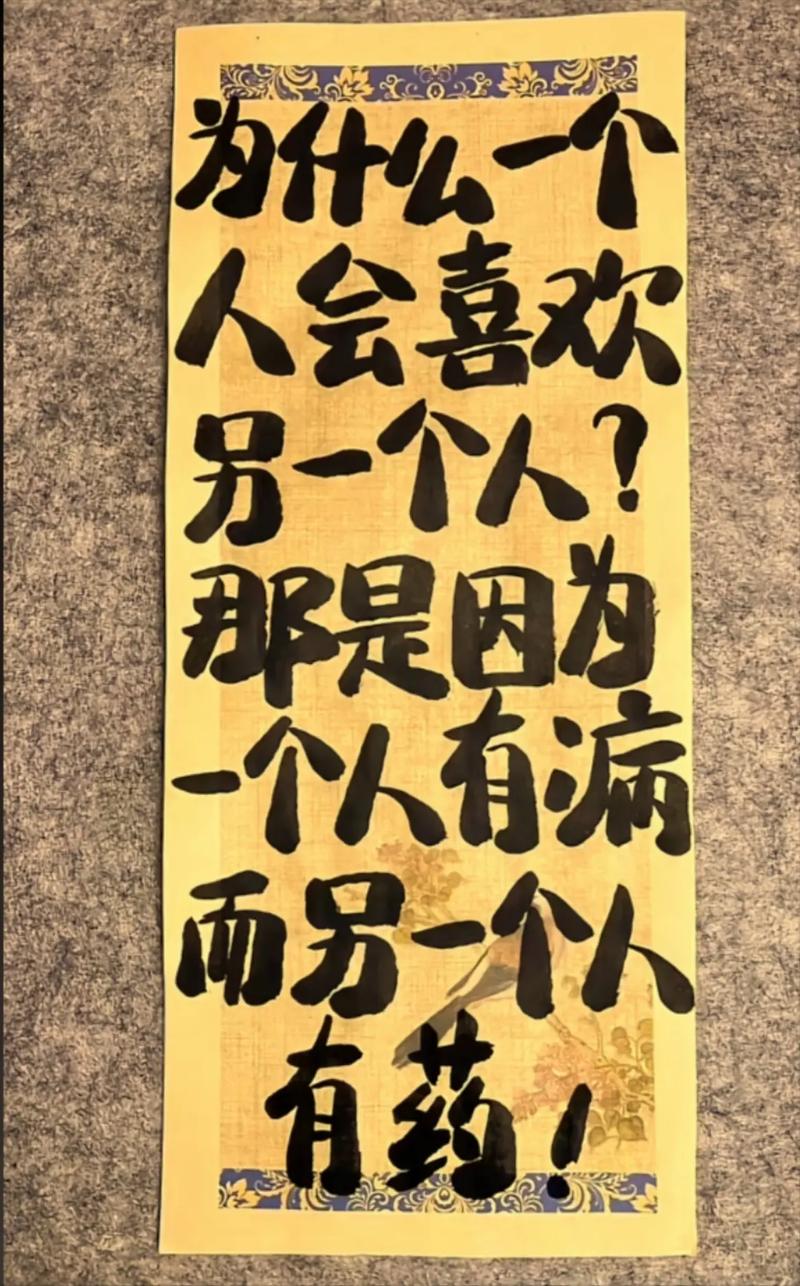 为什么一个
人会喜欢
另一个人?
那是因为
一个人有病
而另一个人
有药!